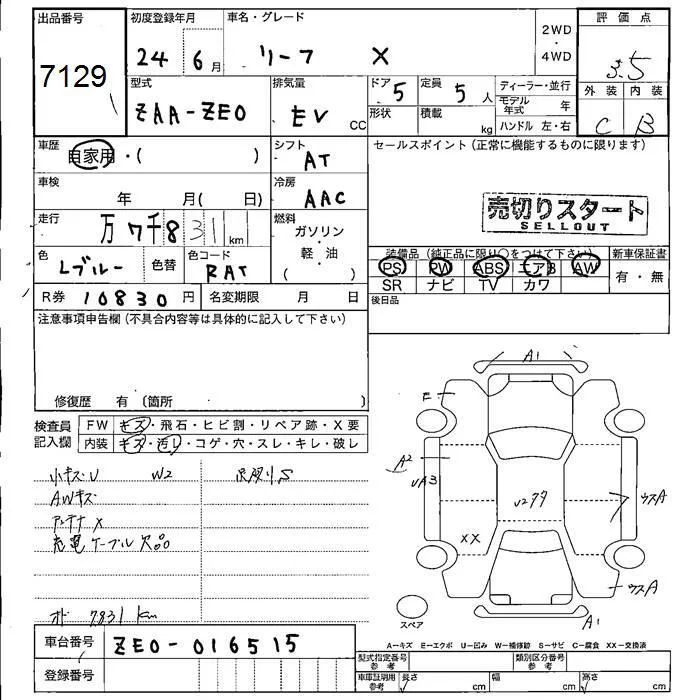 出品番号 初度登録年月 車名・グレード 2WD・4WD 評価点
7129 24 6月 リーフ X 3.5
型式 排気量 ドア 5 定員 5人 ディーラー・並行 外装 内装
ZAA-ZE0 EV CC 形状 積載 kg モデル年式 年 C B
ハンドル 左・右
車歴 自家用・( ) シフト AT セールスポイント(正常に機能するものに限ります)
車検 年 月( 日) 冷房 AAC
売切りスタート
SELLOUT
走行 万7千831km 燃料 ガソリン・軽・油 ( )
色 Lブルー 色替 色コード RAT 装備品(純正品に限り○をつけて下さい) 新車保証書
PS PW ABS エアB AW 有・無
SR ナビ TV カワ
R券 10830円 名変期限 月 日 後日品
注意事項申告欄(不具合内容等は具体的に記入して下さい)
修復歴 有 〔箇所 〕
検査員記入欄 FW キズ・飛石・ヒビ割・リペア跡・X要
内装 キズ・汚レ・コゲ・穴・スレ・キレ・破レ
小キズU W2
AWキズ
アンテナX
充電ケーブル欠品
オド 7831 km
A1
E
A2
UA3
U2
ウスA
XX
ウスA
A1
スペア
A-キズ E-エクボ U-凹み W-補修跡 S-サビ C-腐食 XX-交換済
車台番号 ZE0-016515
型式指定番号 参考 類別区分番号 参考
登録番号
車庫証明用 参考 長さ cm 幅 cm 高さ cm